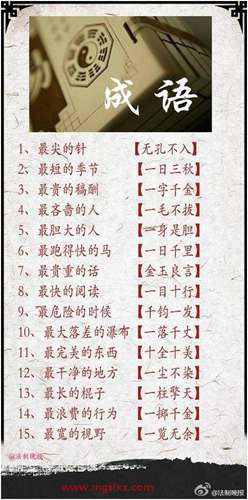 成语
1、最尖的针【无孔不入】
2、最短的季节【一日三秋】
3、最贵的稿酬【一字千金】
4、最吝啬的人【一毛不拔】
5、最胆大的人【一身是胆】
6、最跑得快的马【一日千里】
7、最贵重的话【金玉良言】
8、最快的阅读【一目十行】
9、最危险的时候【千钧一发】
10、最大落差的瀑布【一落千丈】
11、最完美的东西【十全十美】
12、最干净的地方【一尘不染】
13、最长的棍子【一柱擎天】
14、最浪费的行为【一掷千金】
15、最宽的视野【一览无余】
@法制晚报
www.mgslxz.com
@法制晚报